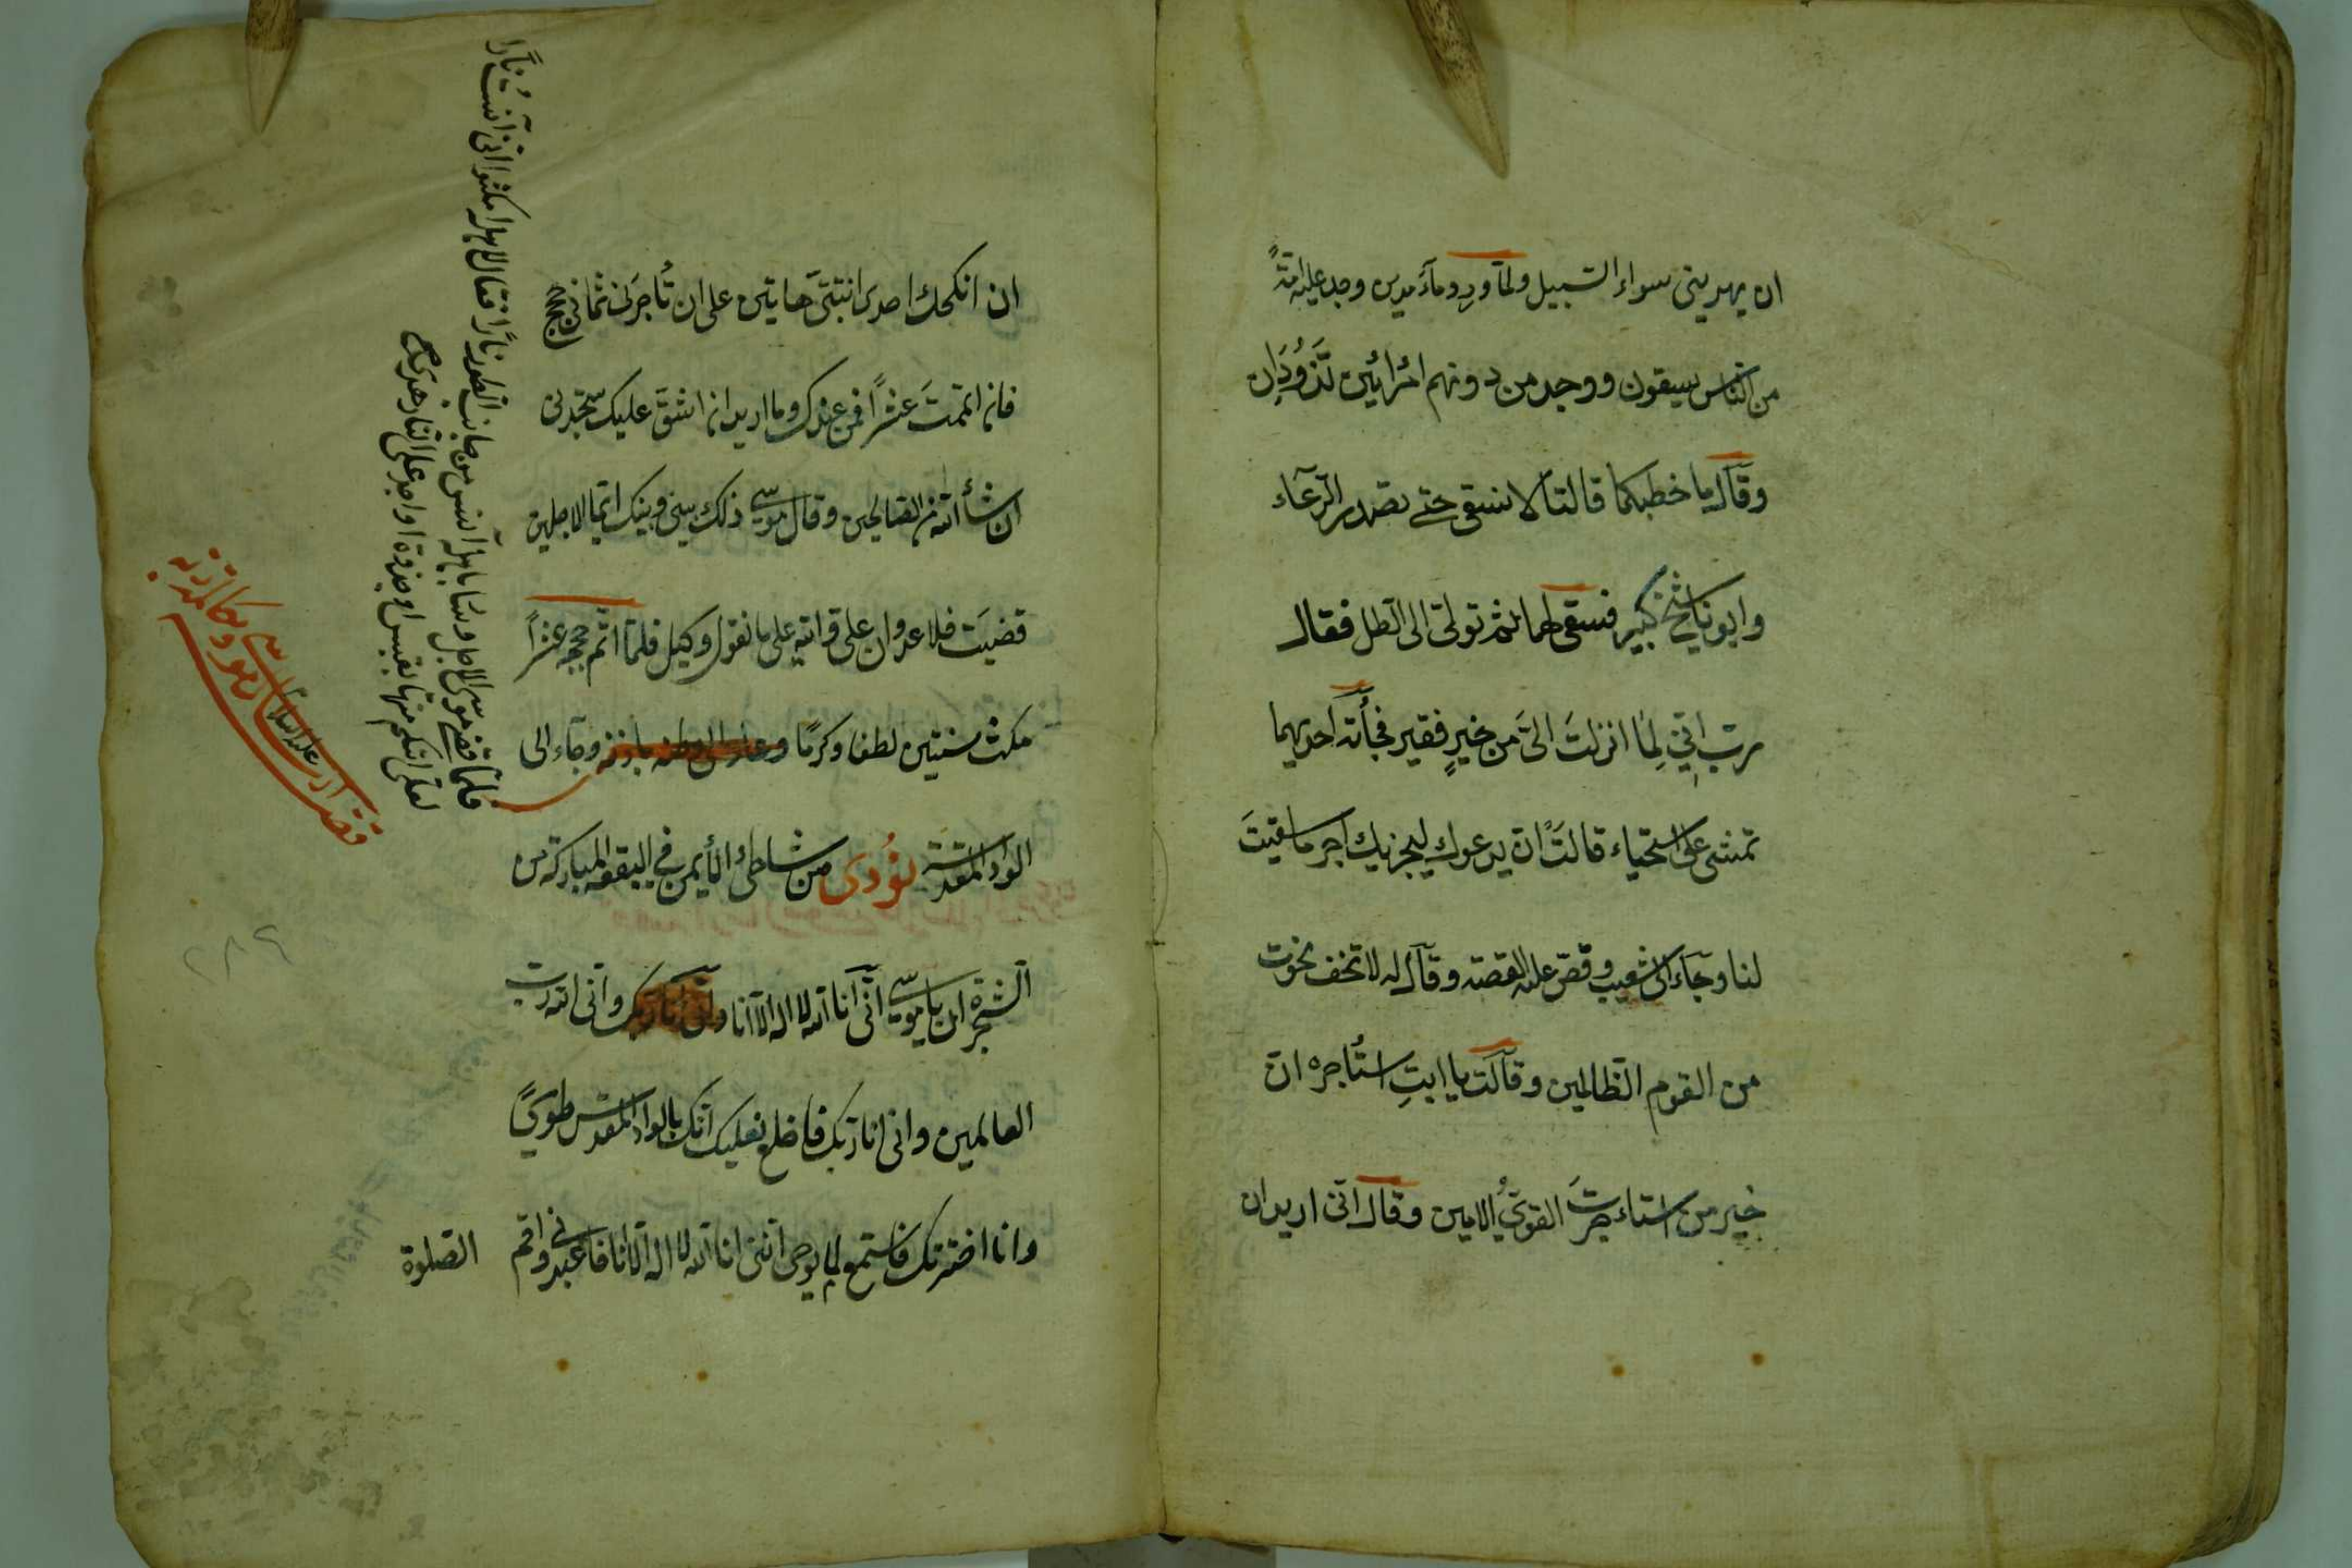 ان يهديني سواء السبيل ولمّا ورد ماءَ مدين وجد عليه امّةً
من النّاس يسقون ووجد من دونهم امرأتين تَذُودَانِ
وقال ما خطبكما قالتا لا نسقى حتى يصدر الرّعاء
وابونا شيخ كبير فسقى لهما ثمّ تولّى الى الظل فقال
ربّ انّي لِمَا انزلتَ الىّ من خيرٍ فقير فجأته احديهما
تمشى على استحياء قالت ان يدعوك ليجزيك اجر ما سقيتَ
لنا وجاء الى شعيب وقصّ عليه القصّة وقال له لا تخف نجوت
من القوم الظالمين وقالت يا ابتِ استأجره انّ
خير من استاءجرتَ القوىُّ الامين وقال انّى اريد ان
ان انكحك احدى ابنتىّ هاتين على ان تُاجرَنى ثمانى حجج
فان اتممتَ عشراً فمن عندك وما اريد ان اشقّ عليك ستجدنى
ان شأ الله من الصّالحين وقال موسى ذلك بينى وبينك ايّما الاجلين
قضيتَ فلا عدوان علىّ والله على ما نقول وكيل فلمّا اتمّ حججه عشراً
مكث سنتين لطفا وكرمًا باذنه وجاء الى
الواد المقدّسة نُودى من شاطئ الأيمن في البقعة المباركة من
الشّجرة ان يا موسى انّى انا الله لا اله الّا انا وانى انا ربّك وانى الله ربّ
العالمين وانى انا ربّك فاخلع نعليك انّك بالواد المقدّس طوىً
وانا اخترتك فاستمع لما يوحى انّنى انا الله لا اله الّا انا فاعبدنى واقم
الصّلوة
فلمّا قضى موسى الاجل وسار باهله آنس من جانب الطّور نارًا فقال لاهله امكثوا انى آنستُ نارًا
لعلّى اتيكم منها بقبس او جذوة او اجد على النّار هدى
قصّة موسى عليه السلام